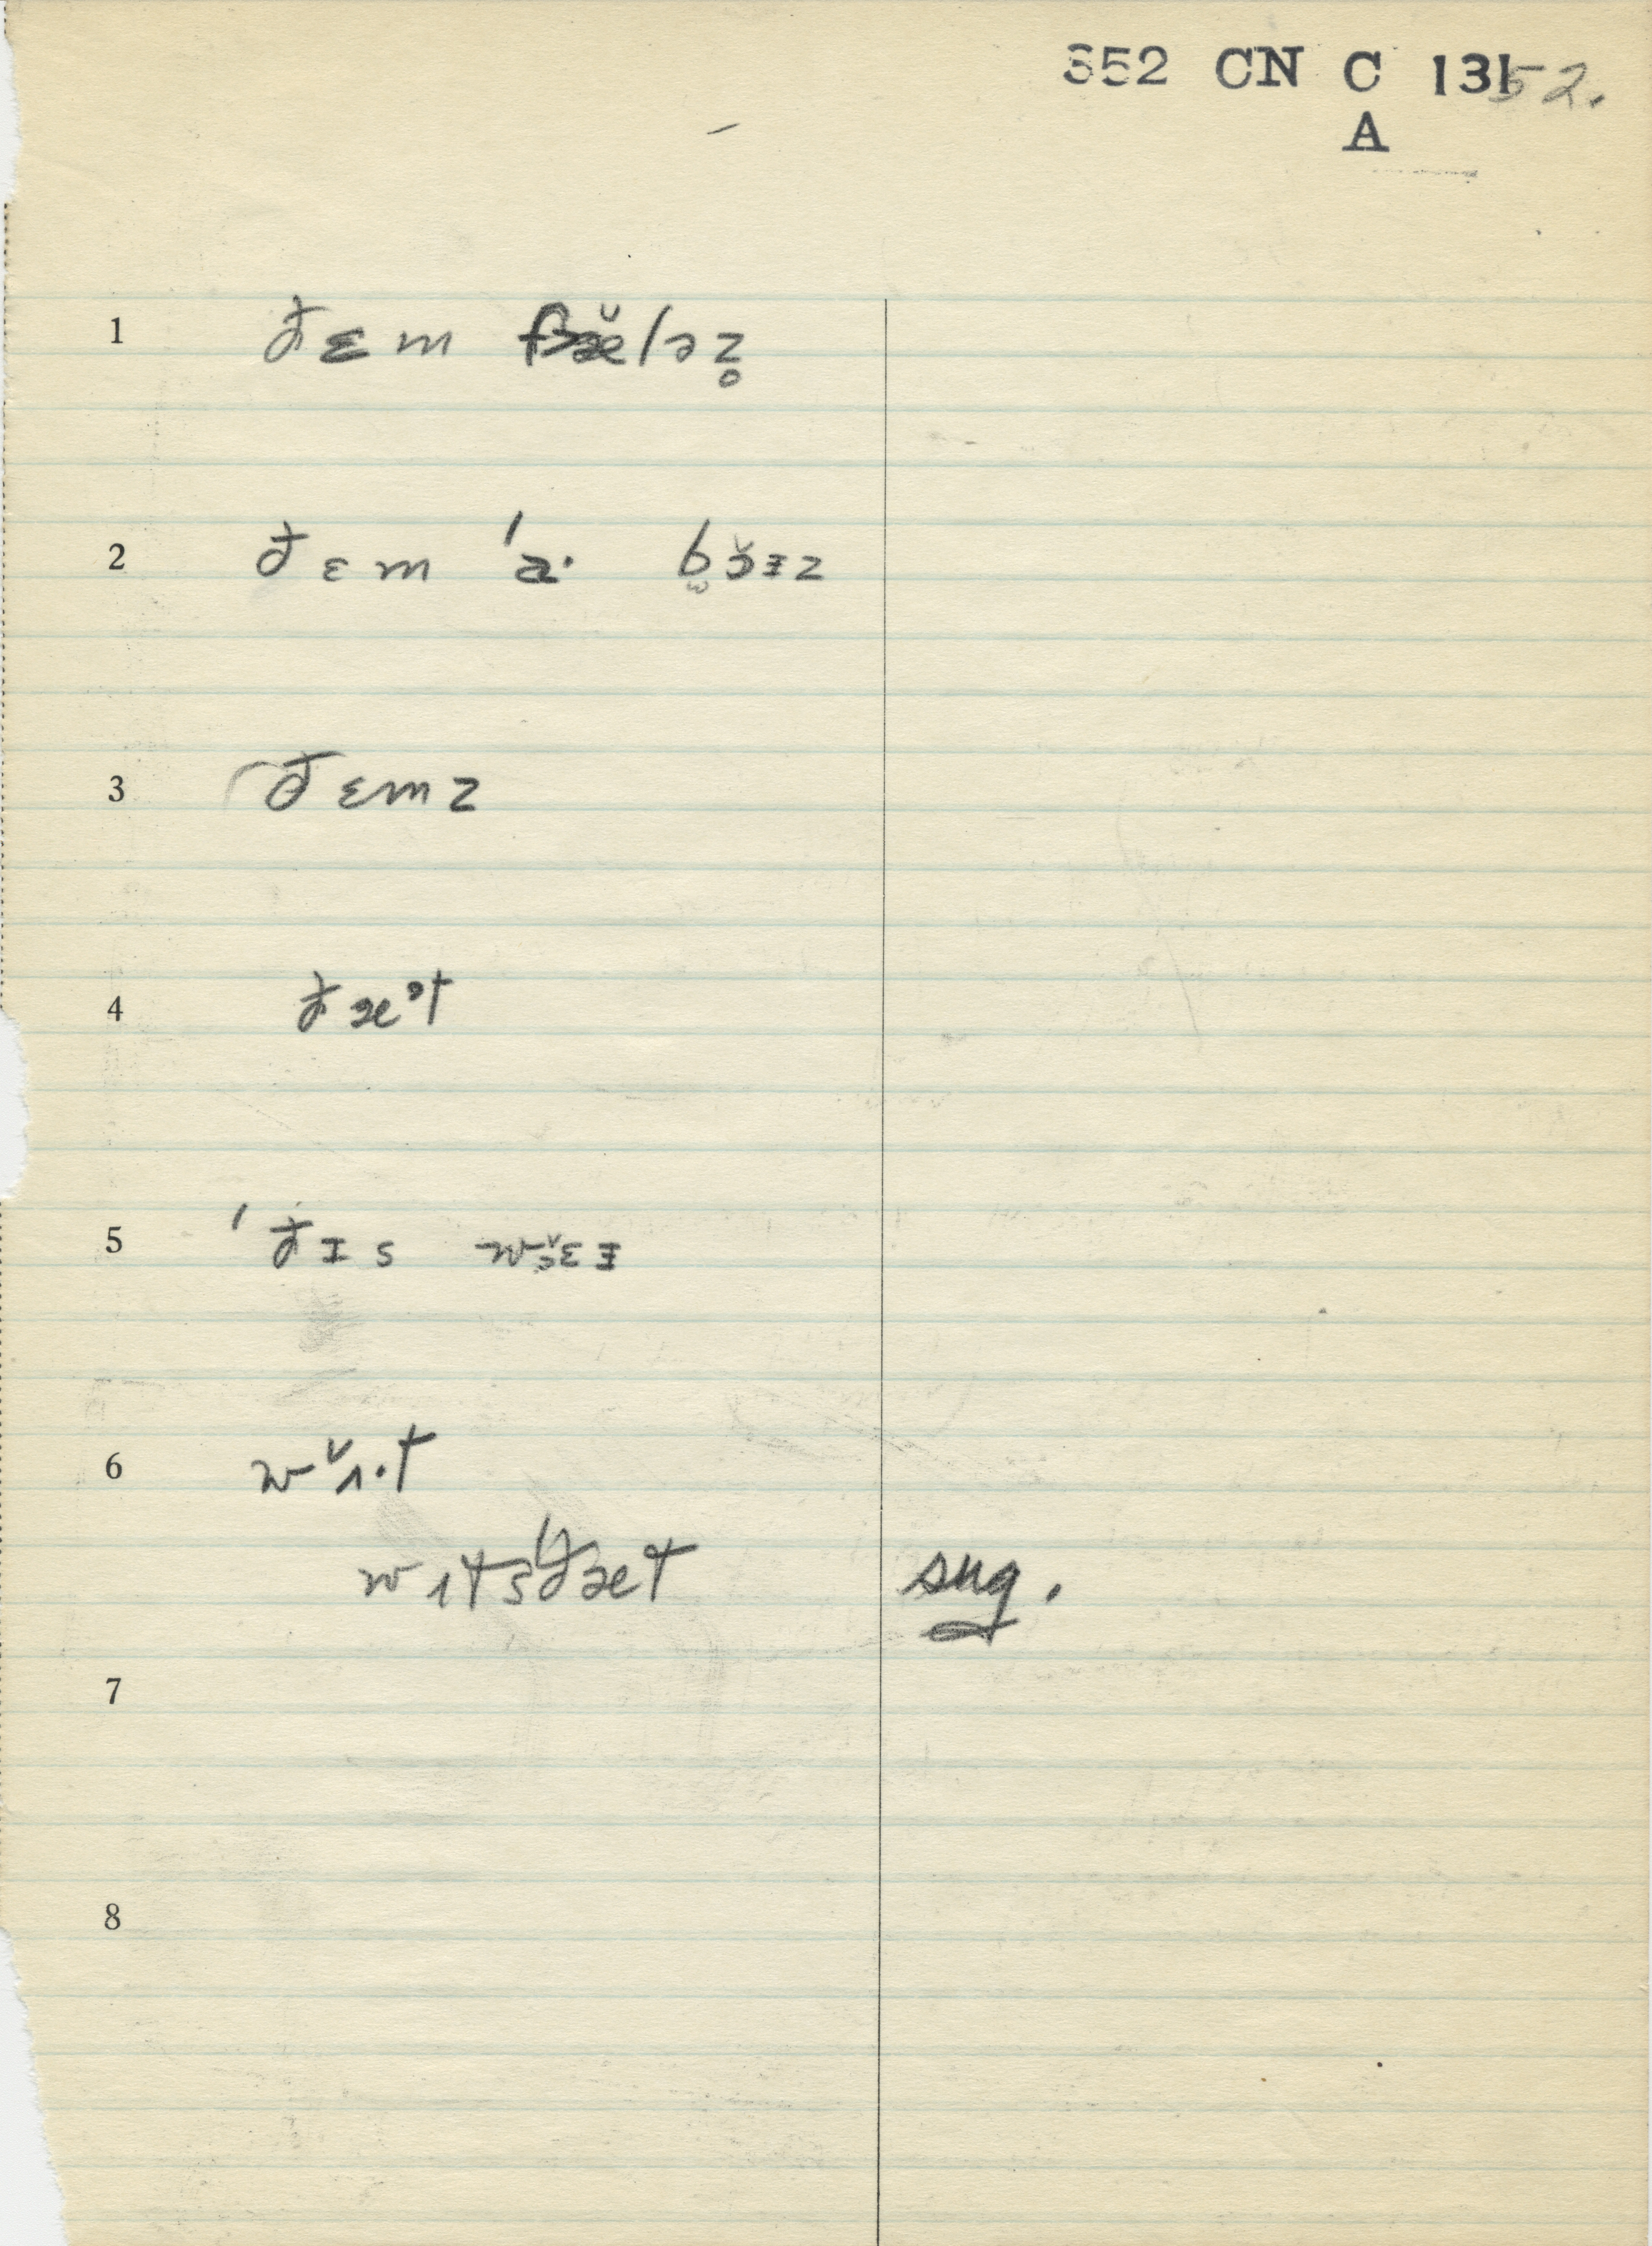 352 CN C 131 52.
A
1 ðɛm fɛ̆læz̥
2 ðɛm ˈa· bɔ̆ɪz
3 ðɛmz
4 ðæᵊt
5 ˈðɪs wɜ̆ɛɪ
6 wʌ̆·t
wɪtsˈðæt sug.
7
8